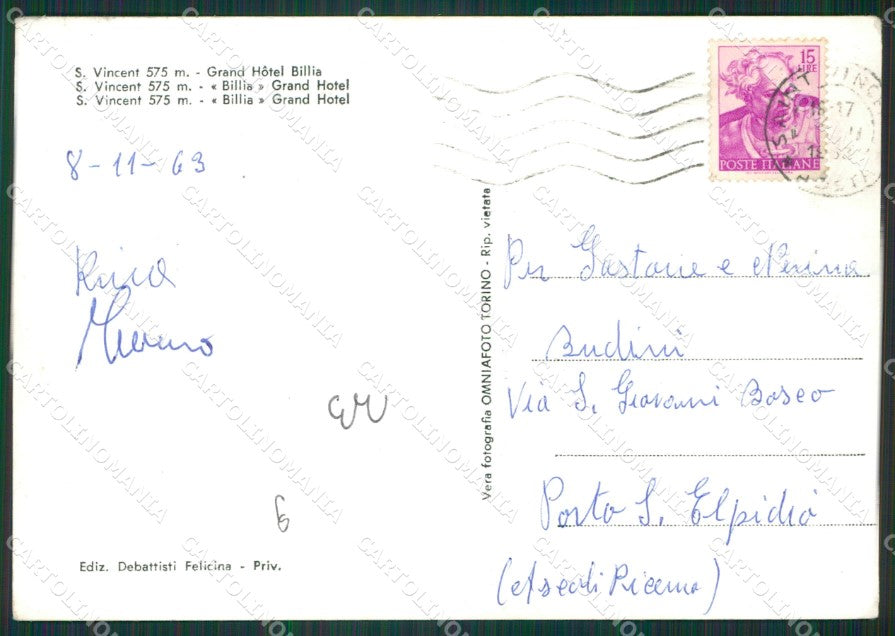 S. Vincent 575 m. - Grand Hôtel Billia
S. Vincent 575 m. - « Billia » Grand Hotel
S. Vincent 575 m. - « Billia » Grand Hotel
8-11-63
Vera fotografia OMNIAFOTO TORINO - Rip. vietata
15
LIRE
POSTE ITALIANE
SAINT VINCE
Per Gastone e Nerina
Budini
Via S. Giovanni Bosco
Porto S. Elpidio
(Ascoli Piceno)
Ediz. Debattisti Felicina - Priv.
CARTOLINOMANIA